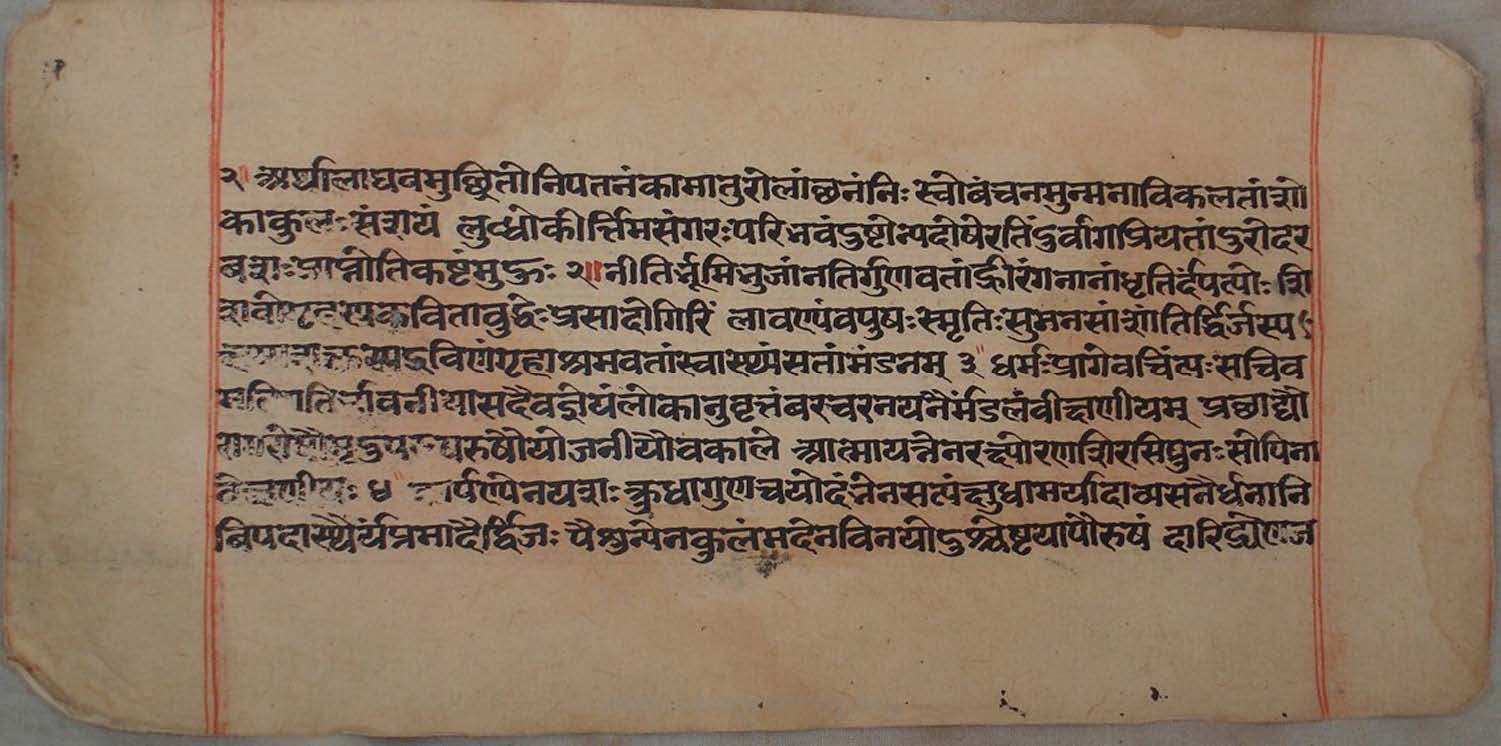 २॥ अर्थालाघवमुच्छ्रितोनिपतनंकामातुरोलांछनंनिःस्वोवंचनमुन्मनाविकलतांशो
काकुलःसंशयं लुब्धोकीर्त्तिमसंगरःपरिभवंदुष्टोन्यदोषेरतिंदुर्वागप्रियतांदुरोदर
वशःप्राप्नोतिकष्टंमुहुः २॥ नीतिर्भूमिभुजांनतिर्गुणवतांह्रीरंगनानांधृतिर्दंपत्योःशि
कविताबुद्धेःप्रसादोगिरिं लावण्यंवपुषःस्मृतिःसुमनसांशांतिर्द्विजस्य
द्रविणंगृहाश्रमवतांस्वास्थ्यंसतांमंडनम् ३॥ धर्मःप्रागेवचिंत्यःसचिव
सदैवज्ञेयंलोकानुवृत्तंवरचरनयनैर्मंडलंवीक्षणीयम् प्रछाद्यौ
परुषौयोजनीयौचकाले आत्मायत्नेनरक्ष्योरणशिरसिपुनःसोपिना
यशःक्रुधागुणचयोदंभेनसत्यंक्षुधामर्यादाव्यसनैर्धनानि
विपदास्थैर्यंप्रमादैर्द्विजः पैशुन्येनकुलंमदेनविनयोदुश्चेष्टयापौरुषं दारिद्र्येणज